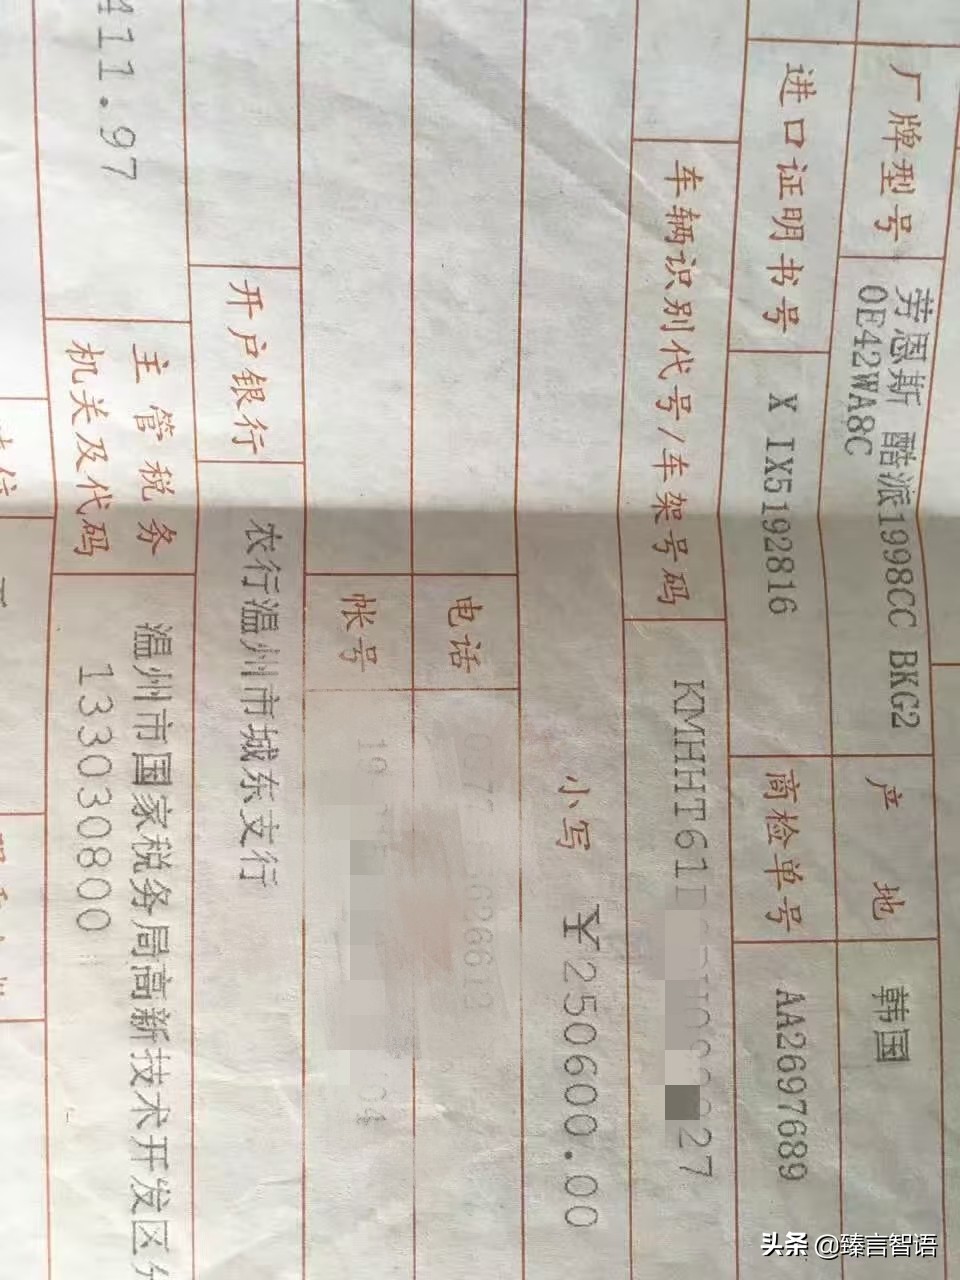 厂牌型号
劳恩斯 酷派1998CC BKG2
0E42WA8C
产 地
韩国
进口证明书号
X IX5192816
商检单号
AA2697689
车辆识别代号/车架号码
KMHHT61
27
小写
￥250600.00
电话
6266
帐号
19
开户银行
农行温州市城东支行
411.97
主管税务
机关及代码
温州市国家税务局高新技术开发区
133030800
头条 @臻言智语